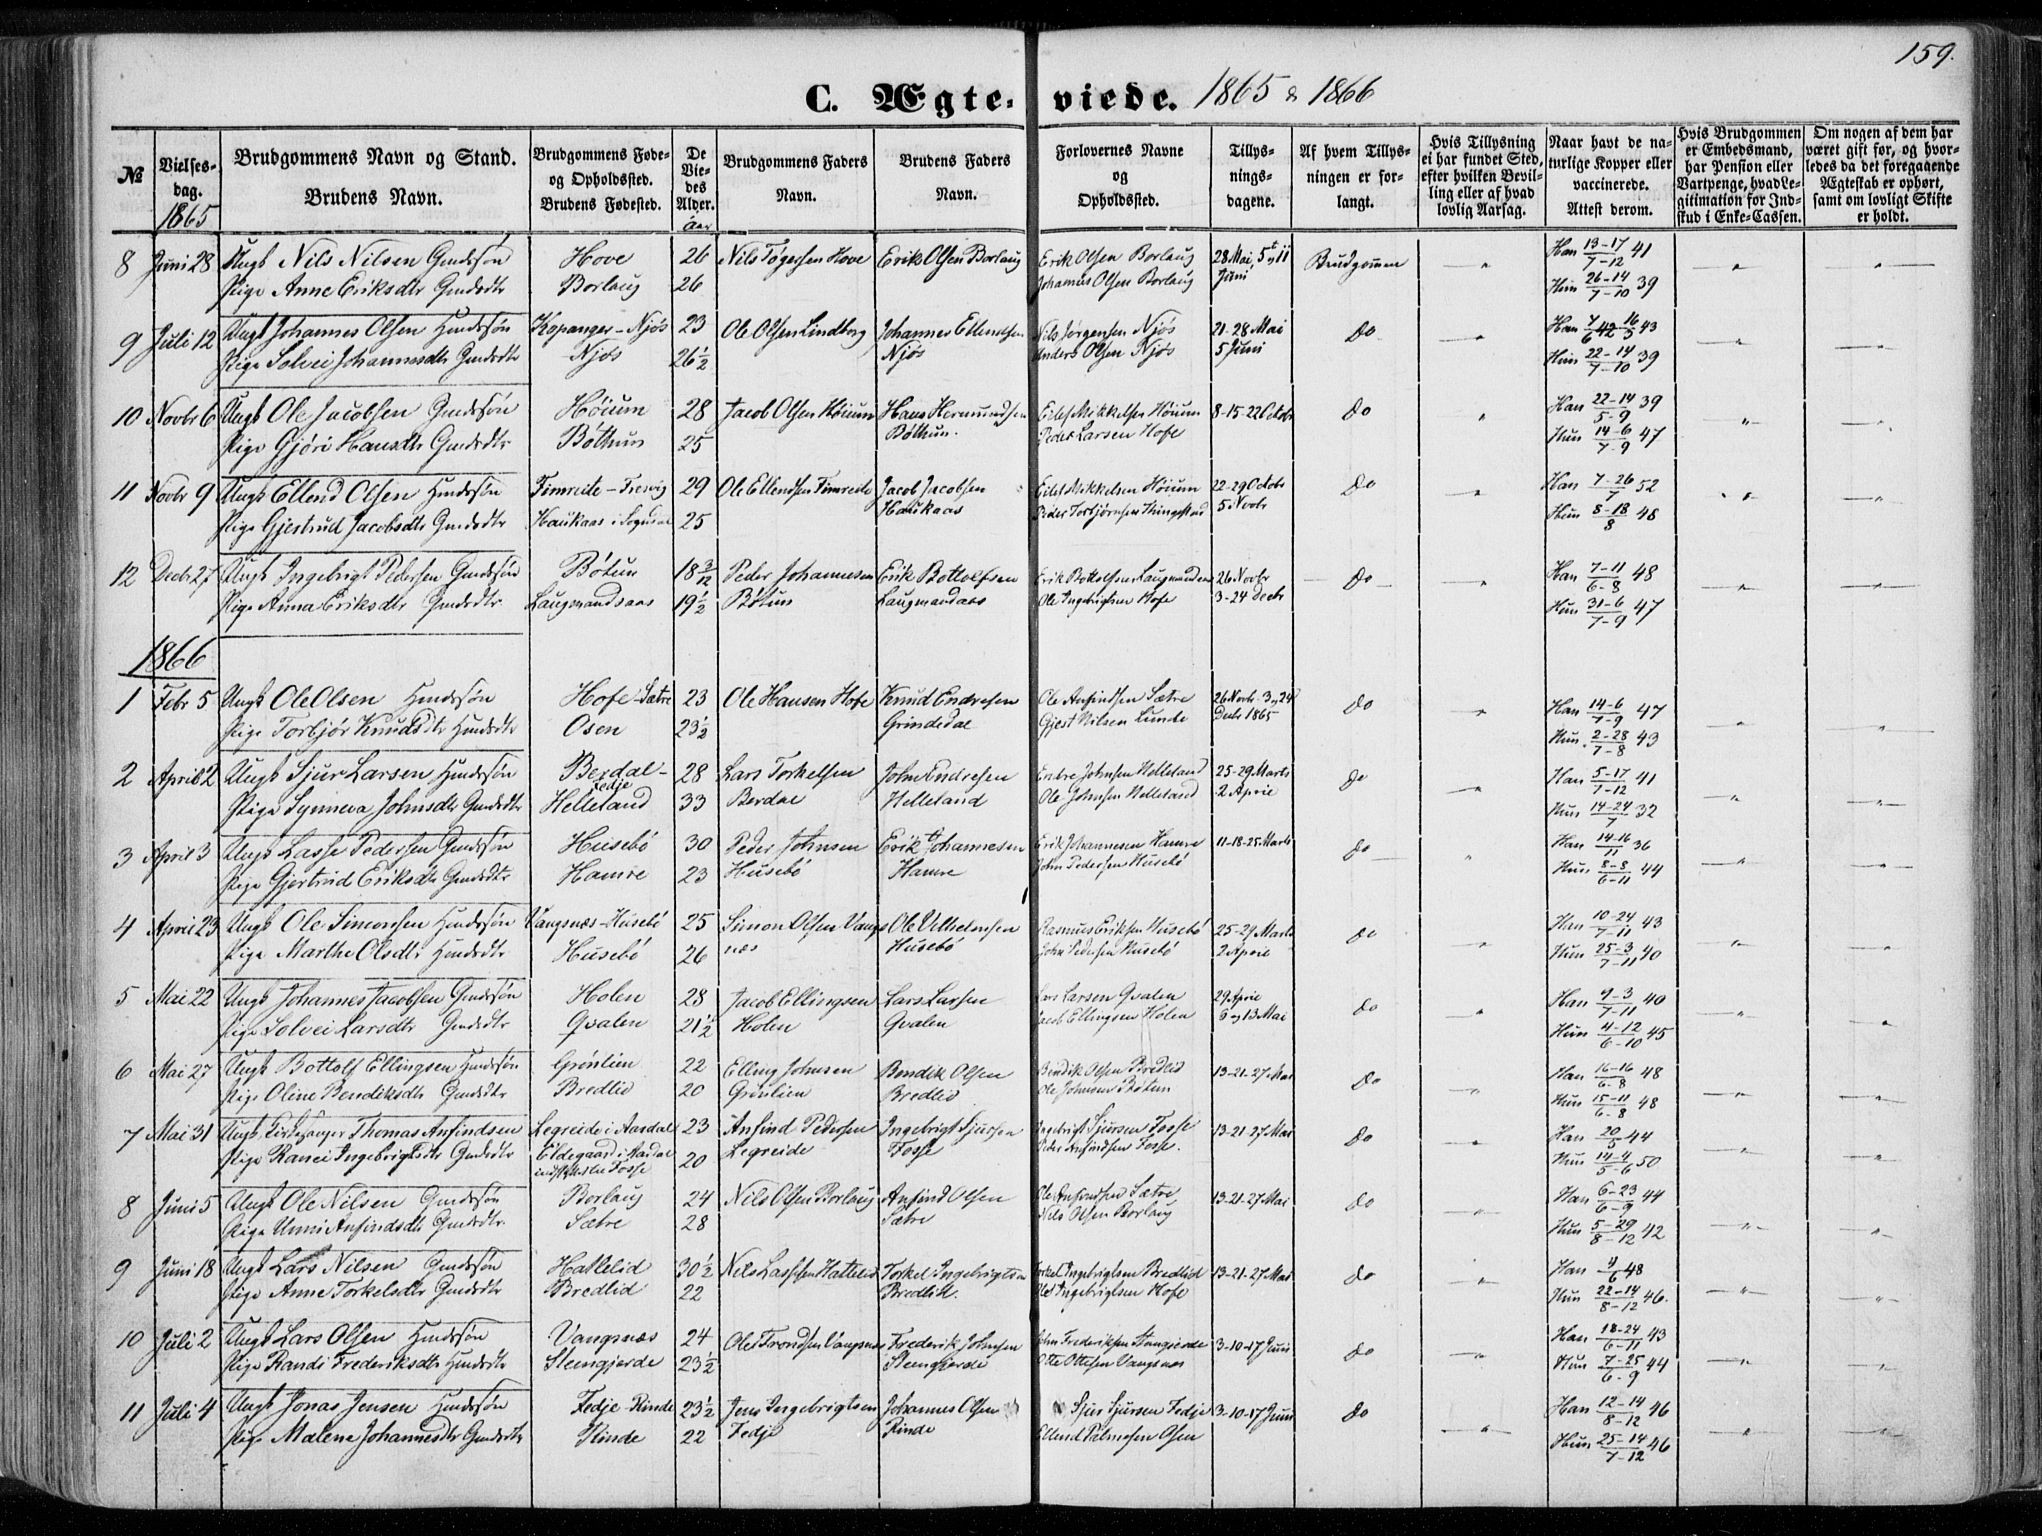 159.
C. Ægteviede. 1865 & 1866
№
Vielsesdag.
1865
Brudgommens Navn og Stand.
Brudens Navn.
Brudgommens Føde- og Opholdssted.
Brudens Fødested.
De Viedes Alder.
Aar
Brudgommens Faders Navn.
Brudens Faders Navn.
Forlovernes Navne og Opholdssted.
Tillysningsdagene.
Af hvem Tillysningen er forlangt.
Hvis Tillysning ei har fundet Sted, efter hvilken Bevilling eller af hvad lovlig Aarsag.
Naar havt de naturlige Kopper eller vaccinerede.
Attest derom.
Hvis Brudgommen er Embedsmand, har Pension eller Vartpenge, hvad Legitimation for Indskud i Enke-Cassen.
Om nogen af dem har været gift før, og hvorledes da det foregaaende Ægteskab er ophørt, samt om lovligt Skifte er holdt.
8 Juni 28 Ungk Nils Nilsen Gmdssøn Hove 26 Nils Tøgersen Hove Erik Olsen Borlaug Erik Olsen Borlaug 28 Mai, 5 & 11 Brudgommen " Han 13-17/7-12 41 " "
Pige Anne Eriksdtr Gmdsdtr Borlaug 26 Johannes Olsen Borlaug Juni Hun 26-14/7-10 39
9 Juli 12 Ungk Johannes Olsen Hmdssøn Kopanger - Njøs 23 Ole Olsen Lindborg Johannes Ellendsen Nils Jørgensen Njøs 21-28 Mai Do " Han 7/6 42 16/5 43 " "
Pige Solvei Johannesdtr Gmdsdtr Njøs 26½ Njøs Anders Olsen Njøs 5 Juni Hun 22-14/7-10 39
10 Novbr 6 Ungk Ole Jacobsen Gmdssøn Høium 28 Jacob Olsen Høium Hans Hermundsen Eilef Mikkelsen Høium 8-15-22 Octobr Do " Han 22-14/5-9 39 " "
Pige Gjøri Hansdtr Gmdsdtr Bøthun 25 Bøthun. Peder Larsen Hofe Hun 14-6/7-9 47
11 Novbr 9 Ungk Ellend Olsen Hmdssøn Fimreite - Fresvig 29 Ole Ellendsen Fimreite Jacob Jacobsen Eilef Mikkelsen Høium 22-29 Octobr Do " Han 7-26/7 52 " "
Pige Gjertrud Jacobsdtr Gmdsdtr Haukaas i Sogndal 25 Haukaas Peder Torbjørnsen Thingstad 5 Novbr Hun 8-18/8 48
12 Decbr 27 Ungk Ingebrigt Pedersen Gmdssøn Bøtun 18 3/12 Peder Johannesen Erik Bottolfsen Erik Bottolfsen Laugmandaas 26 Novbr Do " Han 7-11/6-8 48 " "
Pige Anna Eriksdtr Gmdsdtr Laugmandsaas 19½ Bøtun Laugmandaas Ole Ingebrigtsen Hofe 3-24 Decbr Hun 31-6/7-9 47
1866
1 Febr 5 Ungk Ole Olsen Hmdssøn Hofe - Sætre 23 Ole Hansen Hofe Knud Endresen Ole Anfindsen Sætre 26 Novbr. 3 & 24 Do " Han 14-6/7-9 47 " "
Pige Torbjør Knudsdtr Hmdsdtr Osen 23½ Grindedal Gjest Nilsen Lunde Decbr 1865 Hun 2-28/7-8 43
2 April 2 Ungk Sjur Larsen Hmdssøn Berdal - Fedje 28 Lars Torkelsen John Endresen Endre Johnsen Helleland 25-29 Marts Do " Han 5-17/7-12 41 " "
Pige Synneva Johnsdtr Gmdsdtr Helleland 33 Berdal Helleland Ole Johnsen Helleland 2 April Hun 14-24/7 32
3 April 3 Ungk Lasse Pedersen Gmdssøn Husebø 30 Peder Johnsen Erik Johannesen Erik Johannesen Hamre 11-18-25 Marts Do " Han 14-16/11 36 " "
Pige Gjertrud Eriksdtr Gmdsdtr Hamre 23 Husebø Hamre John Pedersen Husebø Hun 8-8/6-11 44
4 April 23 Ungk Ole Simonsen Hmdssøn Vangsnæs - Husebø 25 Simon Olsen Vangs Ole Vilhelmsen Rasmus Eriksen Husebø 25-29 Marts Do " Han 10-24/7-11 43 " "
Pige Marthe Olsdtr Hmdsdtr Husebø 26 næs Husebø John Pedersen Husebø 2 April Hun 25-3/7-11 40
5 Mai 22 Ungk Johannes Jacobsen Gmdssøn Holen 28 Jacob Ellingsen Lars Larsen Lars Larsen Qvalen 29 April Do " Han 9-3/7-11 40 " "
Pige Solvei Larsdtr Gmdsdtr Qvalen 21½ Holen Qvalen Jacob Ellingsen Holen 6 og 13 Mai Hun 4-12/6-10 45
6 Mai 27 Ungk Bottolf Ellingsen Hmdssøn Grønlien 22 Elling Johnsen Bendik Olsen Bendik Olsen Bredlid 13-21-27 Mai Do " Han 16-16/6-8 48 " "
Pige Oline Bendiksdtr Gmdsdtr Bredlid 20 Grønlien Bredlid Ole Johnsen Bøtun Hun 15-11/6-8 48
7 Mai 31 Ungk. Kirkesanger Thomas Anfindsen Legreide i Aardal 23 Anfind Pedersen Ingebrigt Sjursen Ingebrigt Sjursen Fosse 13-21-27 Mai Do " Han 20/5 44 " "
Pige Ranei Ingebrigtsdtr Gmdsdtr Eldegaard i Aardal 20 Legreide Fosse Peder Anfindsen Fosse. Hun 14-4/5-6 50
indflyttet til Fosse
8 Juni 5 Ungk Ole Nilsen Gmdssøn Borlaug 24 Nils Olsen Borlaug Anfind Olsen Ole Anfindsen Sætre 13-21-27 Mai Do " Han 6-23/6-9 44 " "
Pige Unni Anfindsdtr Gmdsdtr Sætre 28 Sætre Nils Olsen Borlaug Hun 5-29/8-12 42
9 Juni 18 Ungk Lars Nilsen Gmdssøn Hatlelid 30½ Nils Lassesen Hatlelid Torkel Ingebrigtsen Torkel Ingebrigtsen Bredlid 13-21-27 Mai Do " Han 4/6 48 " "
Pige Anne Torkelsdtr Gmdsdtr Bredlid 22 Bredlid. Ole Ingebrigtsen Hofe Hun 22-14/8-12 46.
10 Juli 2 Ungk Lars Olsen Hmdssøn Vangsnæs 24 Ole Trondsen Vangsnæs Frederik Johnsen John Frederiksen Stengjerde 3-10-17 Juni Do " Han 18-24/6-11 43 " "
Pige Randi Frederiksdtr Hmdsdtr Stengjerde 23½ Stengjerde Otte Ottesen Vangsnæs Hun 7-25/6-9 44
11 Juli 4 Ungk Jonas Jensen Hmdssøn Fedje - Rinde 23½ Jens Ingebrigtsen Johannes Olsen Sjur Sjursen Fedje 3-10-17 Juni Do " Han 12-14/8-12 46 " "
Pige Malene Johannesdtr Gmdsdtr Rinde 22 Fedje Rinde Ellend Palmesen Osen Hun 25-14/7-12 46